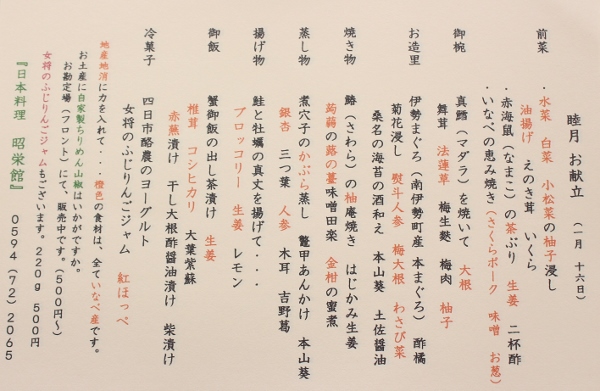 睦月 お献立 (一月 十六日)
前菜
・水菜 白菜 小松菜の柚子浸し
油揚げ えのき茸 いくら
・赤海鼠(なまこ)の茶ぶり 生姜 二杯酢
・いなべの恵み焼き(さくらポーク 味噌 お葱)
御椀
真鱈(マダラ)を焼いて 大根
舞茸 法蓮草 梅生麩 梅肉 柚子
お造里
伊勢まぐろ(南伊勢町産 本まぐろ) 酢橘
菊花浸し 熨斗人参 梅大根 わさび菜
桑名の海苔の酒和え 本山葵 土佐醤油
焼き物
鰆(さわら)の柚庵焼き はじかみ生姜
蒟蒻の蕗の薹味噌田楽 金柑の蜜煮
蒸し物
煮穴子のかぶら蒸し 鼈甲あんかけ 本山葵
銀杏 三つ葉 人参 木耳 吉野葛
揚げ物
鮭と牡蠣の真丈を揚げて・・・
ブロッコリー 生姜 レモン
御飯
蟹御飯の出し茶漬け 生姜
椎茸 コシヒカリ 大葉紫蘇
赤蕪漬け 干し大根酢醤油漬け 柴漬け
冷菓子
四日市酪農のヨーグルト
女将のふじりんごジャム 紅ほっぺ
地産地消に力を入れて・・・橙色の食材は、全ていなべ産です。
お土産に自家製ちりめん山椒はいかがですか。
お勘定場(フロント)にて、販売中です。(500円~)
女将のふじりんごジャムもございます。220g 500円
『日本料理 昭栄館』 0594(72)2065